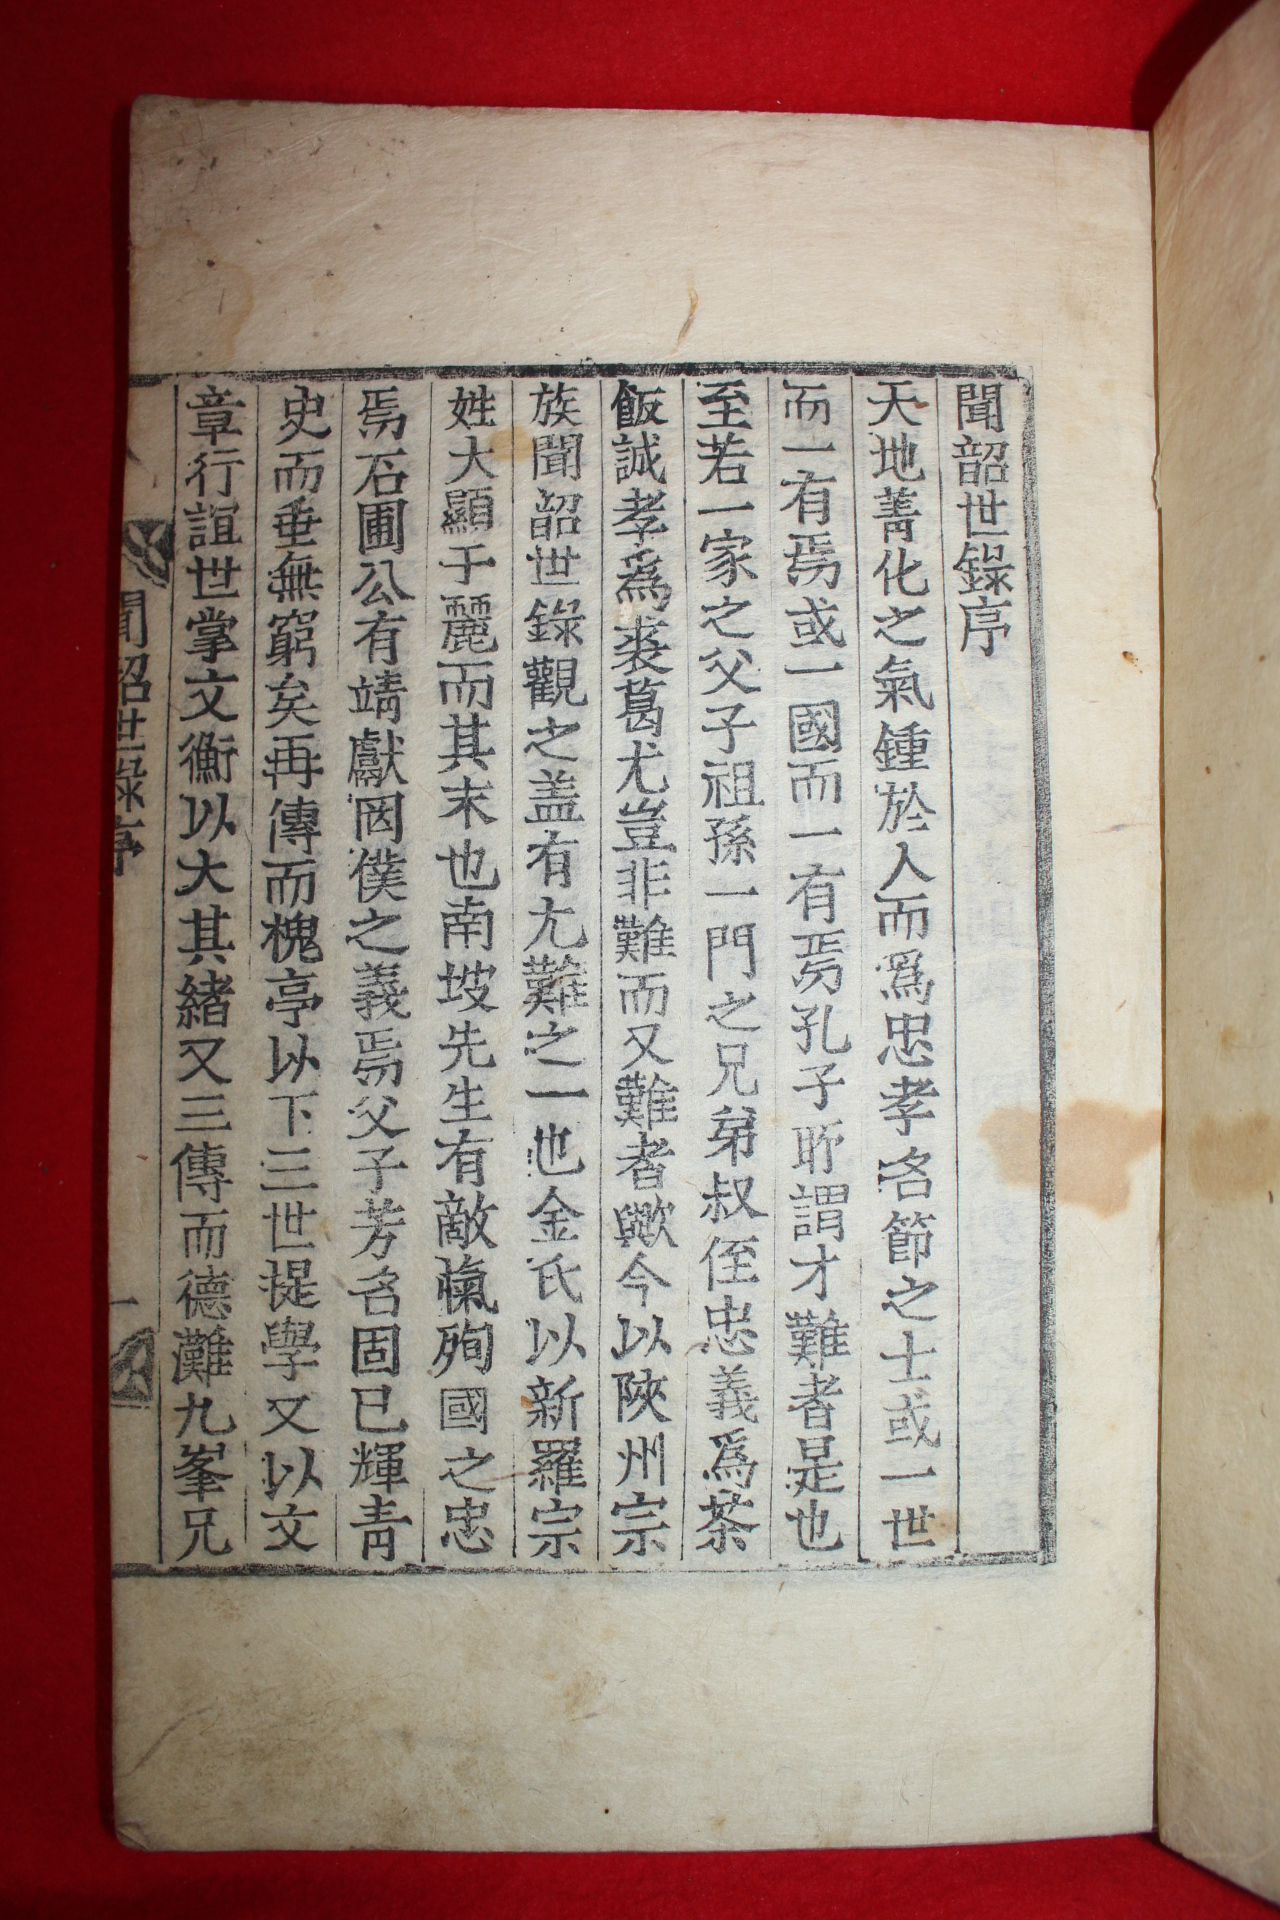 聞韶世錄序
天地菁化之氣鍾於人而爲忠孝名節之士或一世
而一有焉或一國而一有焉孔子所謂才難者是也
至若一家之父子祖孫一門之兄弟叔侄忠義爲茶
飯誠孝爲裘葛尤豈非難而又難者歟今以陜州宗
族聞韶世錄觀之盖有尤難之一也金氏以新羅宗
姓大顯于麗而其末也南坡先生有敵愾殉國之忠
焉石圃公有靖獻罔僕之義焉父子芳名固已輝靑
史而垂無窮矣再傳而槐亭以下三世提學又以文
章行誼世掌文衡以大其緖又三傳而德灘九峯兄
聞韶世錄序 一